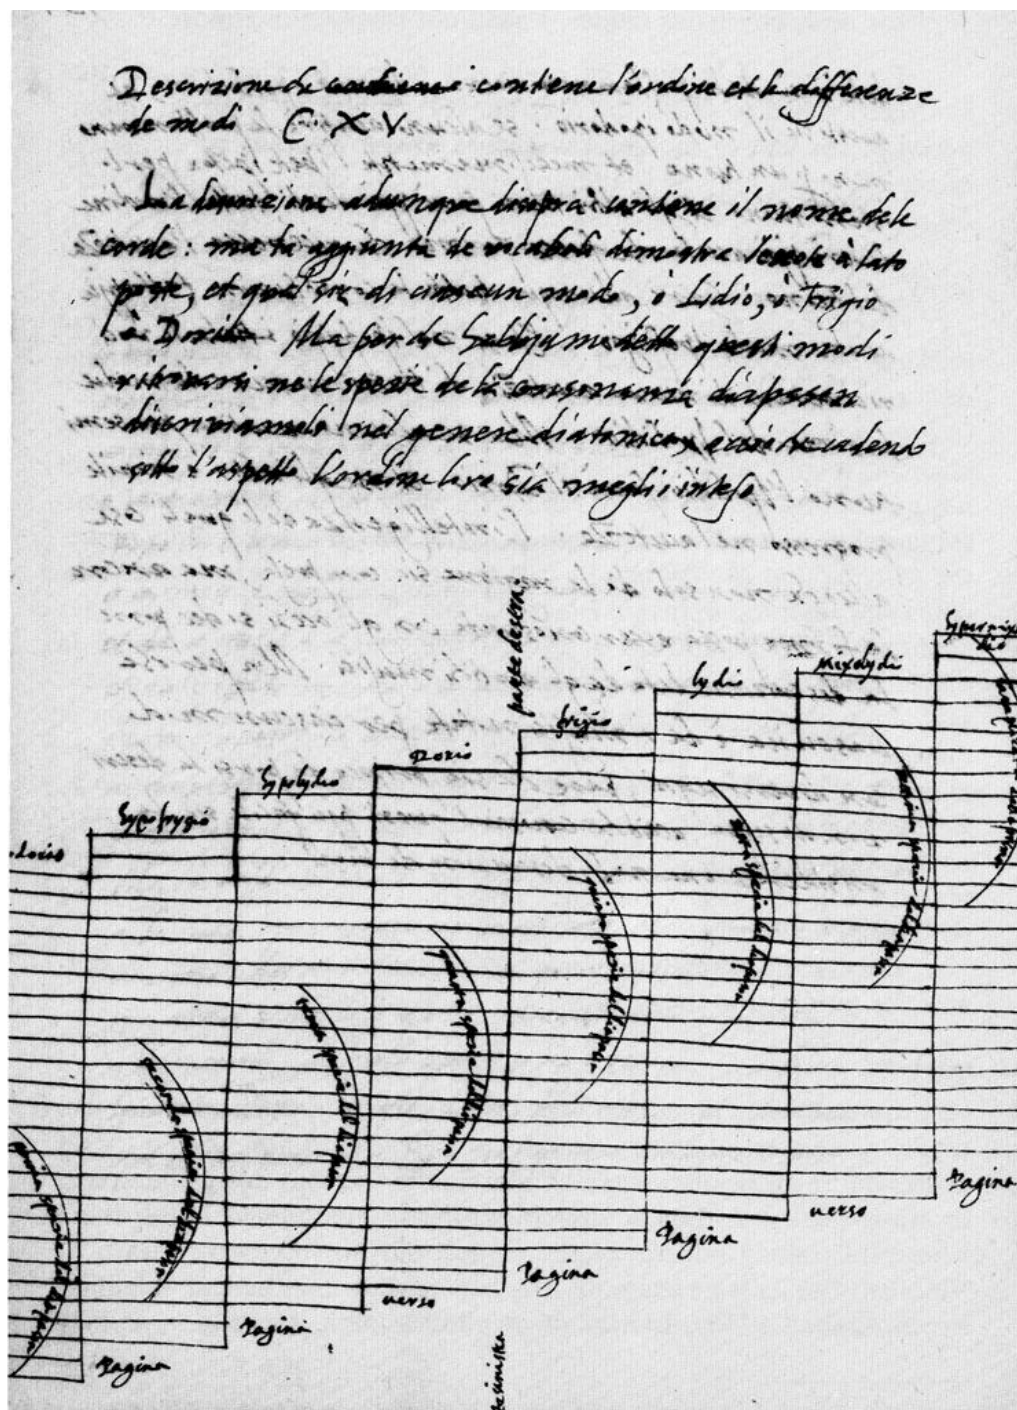 Descrizione che contiene l'ordine et le differenze
de modi C. XV
La descrizione adunque disopra contiene il nome dele
corde: ma la aggiunta de vocaboli dimostra à lato
poste, et qual sia di ciascun modo, ò Lidio, ò Frigio
ò Dorio Ma perche habbiamo detto questi modi
ritrovarsi nele spezie dela consonanza diapason
discriviamoli nel genere diatonico, accio che cadendo
sotto l'aspetto l'ordine loro sia meglio inteso
parte destra
hypermixoly
dio
mixolydio
lydio
frigio
Dorio
hypolydio
hypofrygio
dorio
settima spezia del diapason
sesta spezia del diapason
quinta spezia del diapason
quarta spezia del diapason
terza spezia del diapason
seconda spezia del diapason
prima spezia del diapason
Pagina
verso
Pagina
Pagina
verso
Pagina
Pagina
te sinistra